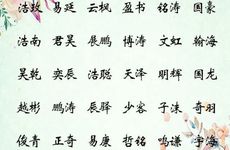 浩玫 易延 云枫 盈书 铭涛 国豪
浩南 君昊 展鹏 博涛 文虹 翰海
昊乾 奕辰 浩聪 天泽 明辉 国龙
越彬 鹏涛 辰驿 少容 子沫 奇羽
俊青 正奇 易康 哲铭 鸣谦 宇海